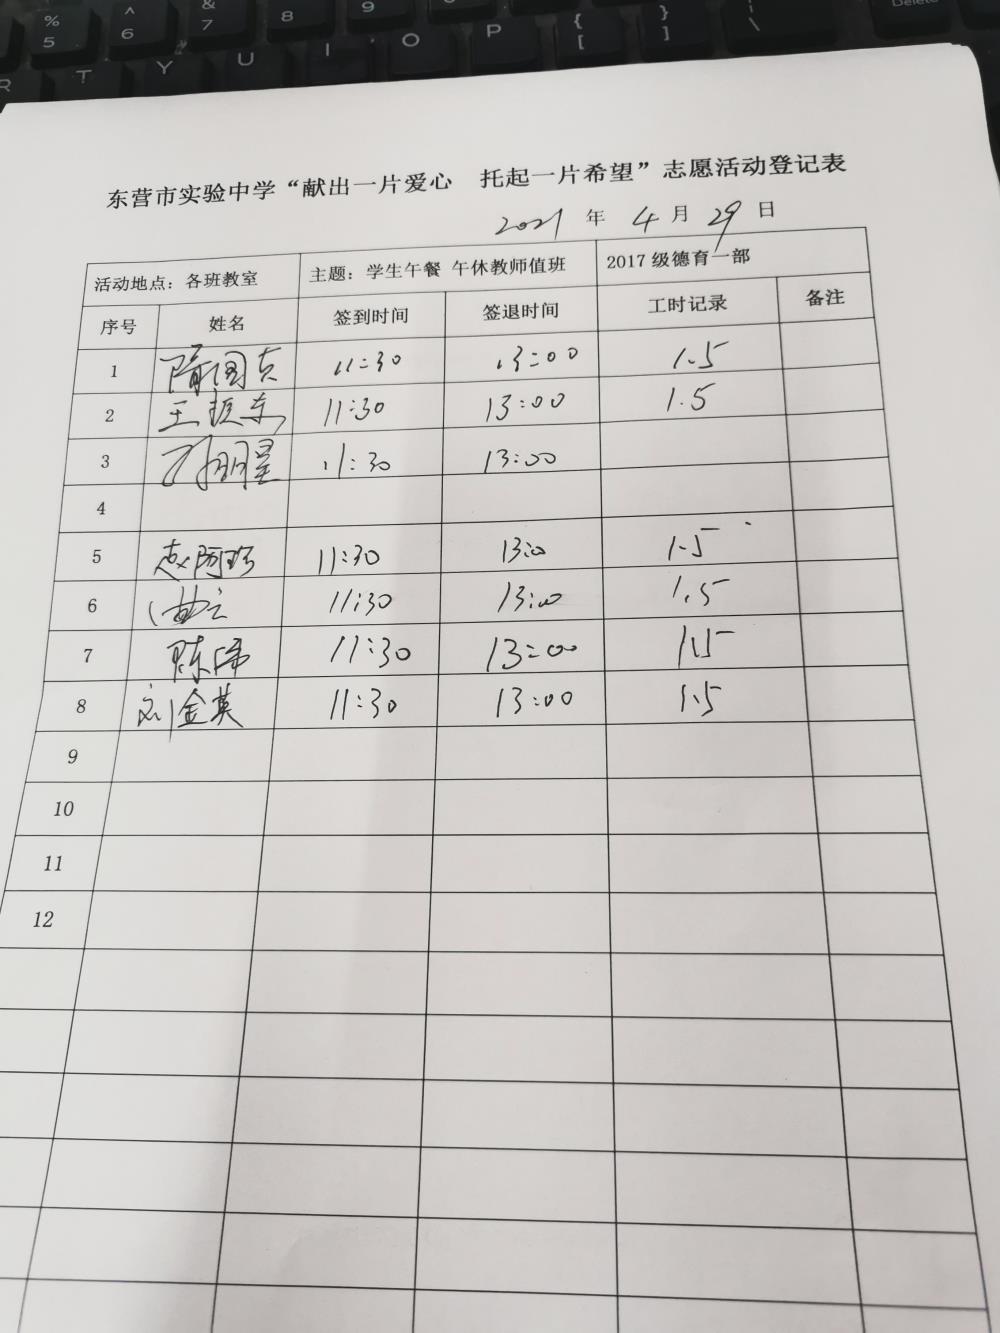 % 5
^ 6
& 7
8
9
{ [
} ]
| \
Delete
R T Y U I O P
东营市实验中学“献出一片爱心 托起一片希望”志愿活动登记表
2021 年 4 月 29 日
活动地点：各班教室 主题：学生午餐 午休教师值班 2017 级德育一部
序号 姓名 签到时间 签退时间 工时记录 备注
1 隋国 11:30 13:00 1.5
2 王振东 11:30 13:00 1.5
3 明星 11:30 13:00
4
5 赵阿 11:30 13:0 1.5
6 11:30 13:00 1.5
7 陈 11:30 13:00 1.5
8 刘金英 11:30 13:00 1.5
9
10
11
12